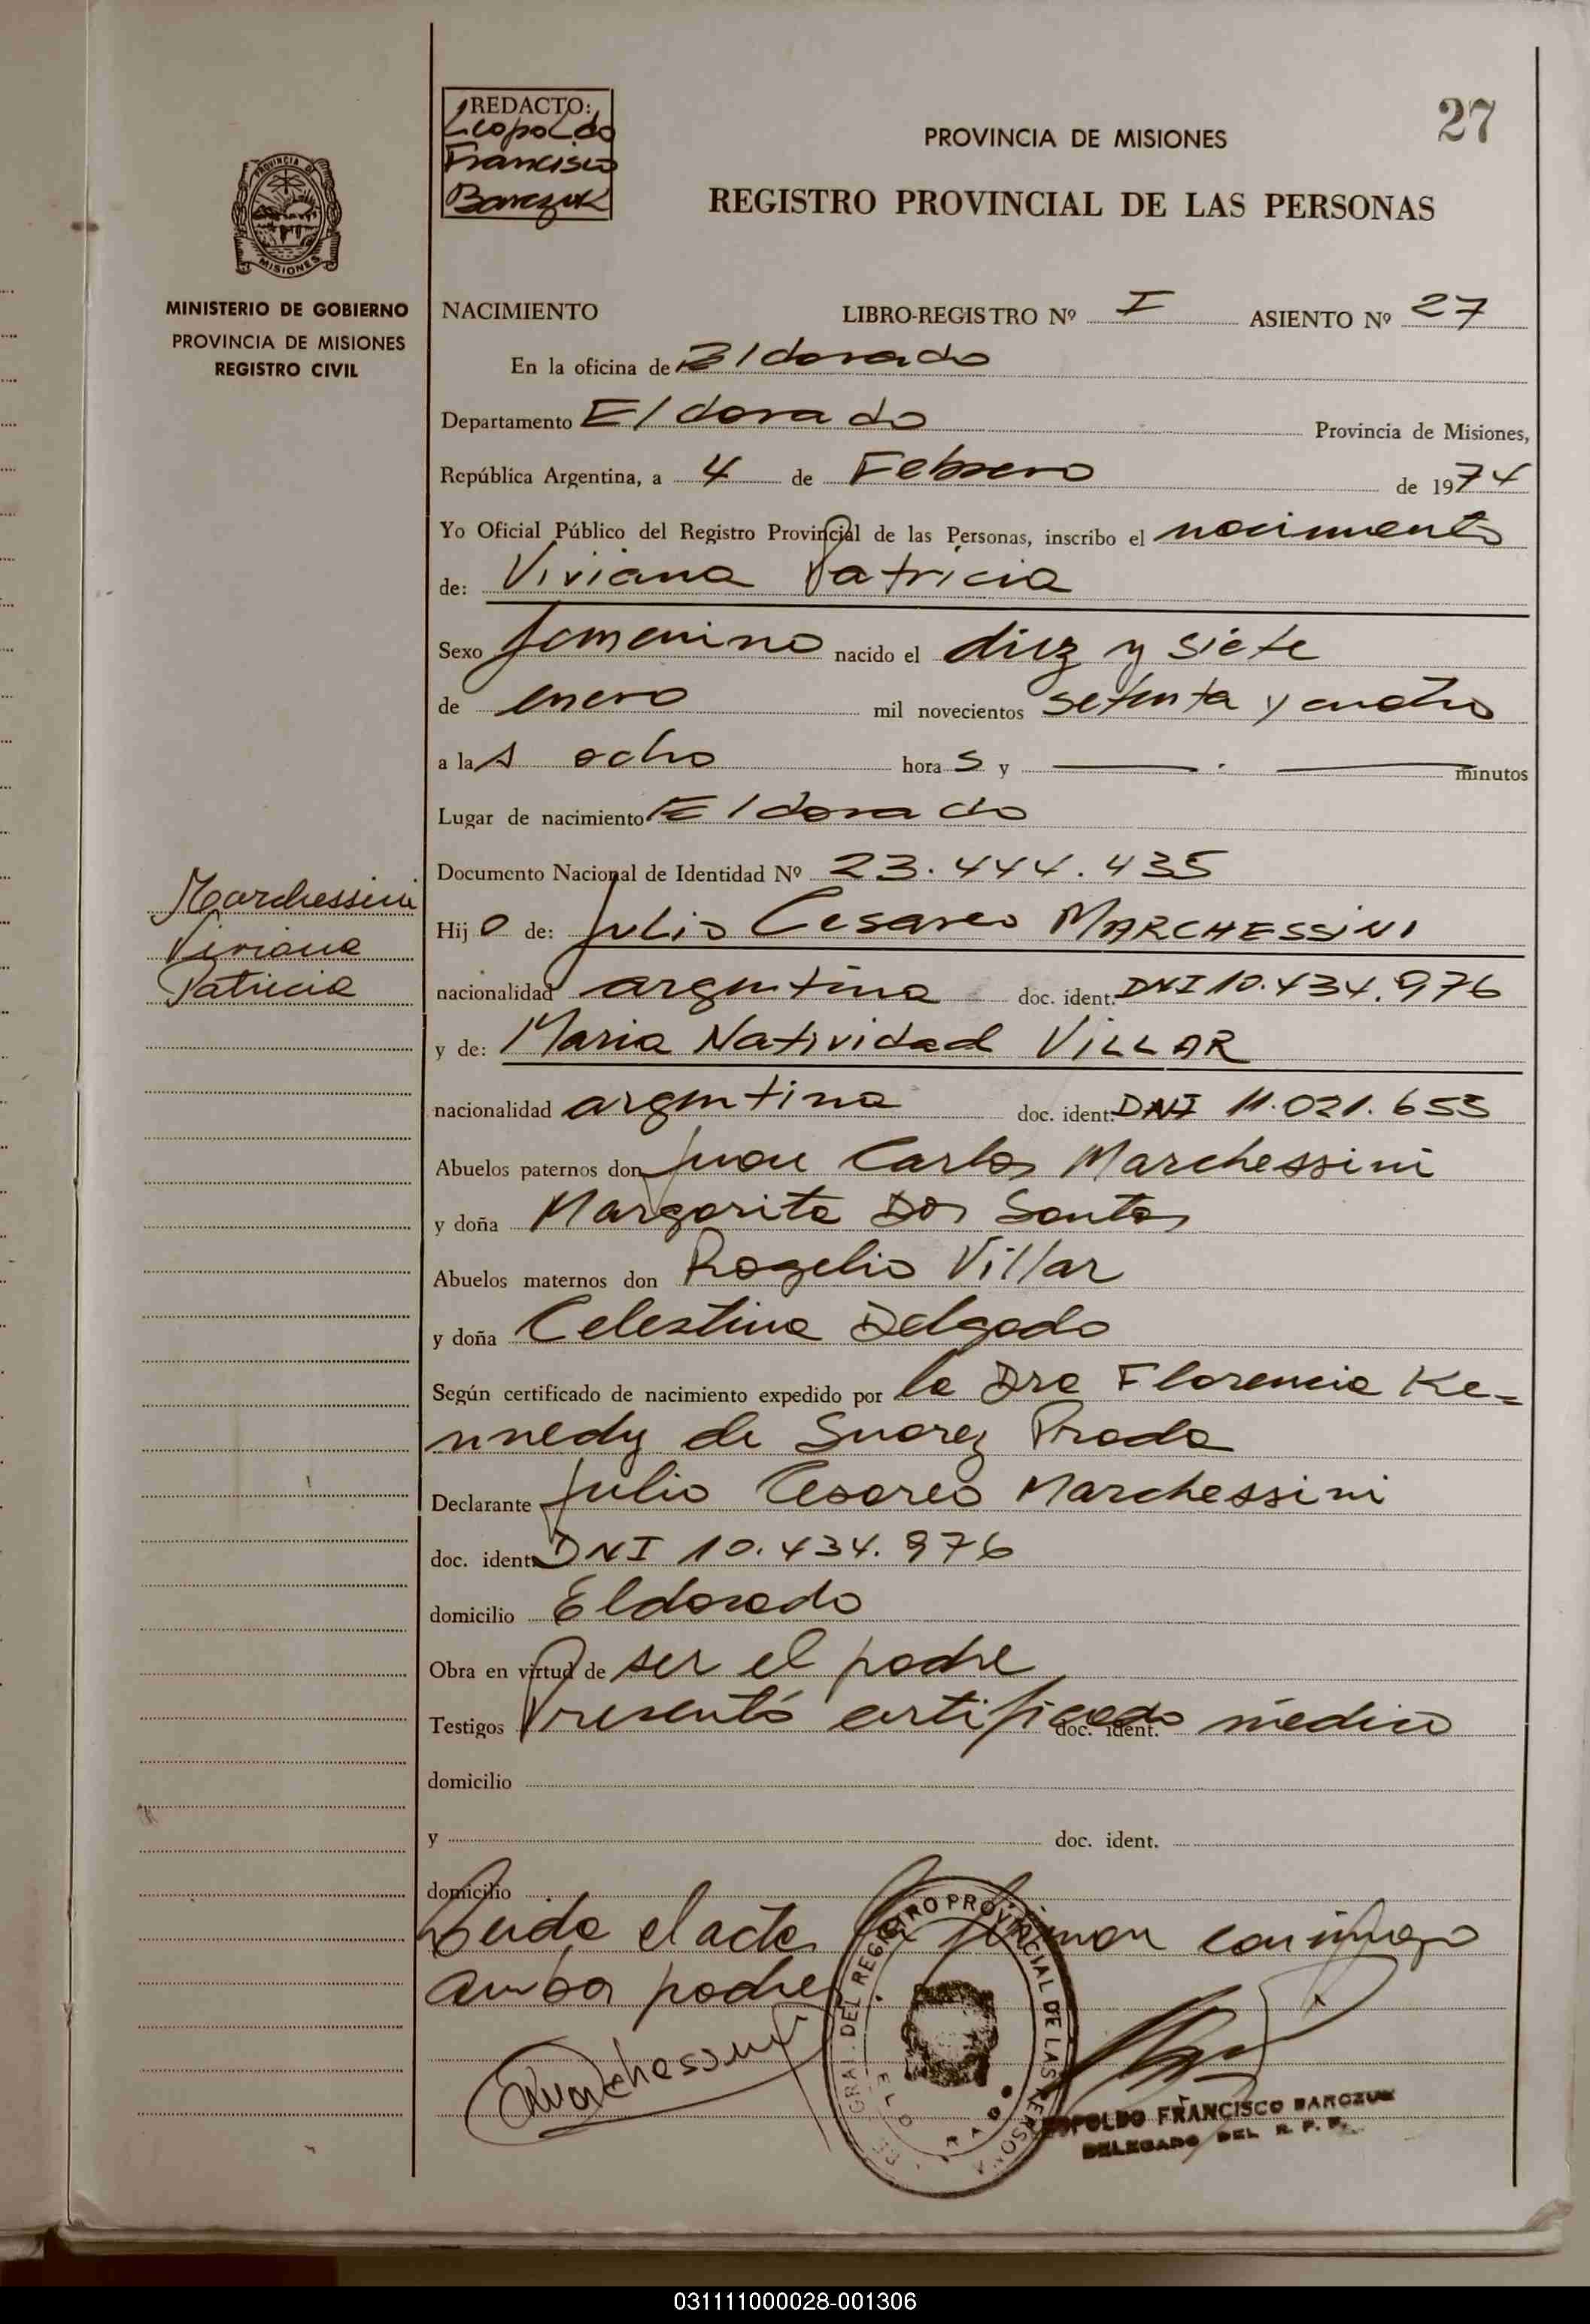 REDACTO:
Leopoldo
Francisco
Barczuk
27
PROVINCIA DE MISIONES
REGISTRO PROVINCIAL DE LAS PERSONAS
PROVINCIA DE
MISIONES
MINISTERIO DE GOBIERNO
PROVINCIA DE MISIONES
REGISTRO CIVIL
NACIMIENTO LIBRO-REGISTRO Nº I ASIENTO Nº 27
En la oficina de Eldorado
Departamento Eldorado Provincia de Misiones,
República Argentina, a 4 de Febrero de 1974
Yo Oficial Público del Registro Provincial de las Personas, inscribo el nacimiento
de: Viviana Patricia
Sexo femenino nacido el diez y siete
de enero mil novecientos setenta y cuatro
a las ocho horas y — . — minutos
Lugar de nacimiento Eldorado
Documento Nacional de Identidad Nº 23.444.435
Marchessini
Viviana
Patricia
Hijo de: Julio Cesareo MARCHESSINI
nacionalidad argentina doc. ident. DNI 10.434.976
y de: Maria Natividad VILLAR
nacionalidad argentina doc. ident. DNI 11.021.655
Abuelos paternos don Juan Carlos Marchessini
y doña Margarita Dos Santos
Abuelos maternos don Rogelio Villar
y doña Celestina Delgado
Según certificado de nacimiento expedido por la Dra Florencia Ke=
nnedy de Suarez Prada
Declarante Julio Cesareo Marchessini
doc. ident. DNI 10.434.976
domicilio Eldorado
Obra en virtud de ser el padre
Testigos Presentó certificado doc. ident. médico
domicilio
y doc. ident.
domicilio
Leida el acta la firman conmigo
ambos padres
Marchessini
REGISTRO PROVINCIAL DE LAS PERSONAS
LEOPOLDO FRANCISCO BARCZUK
DELEGADO DEL R. P. P.
031111000028-001306